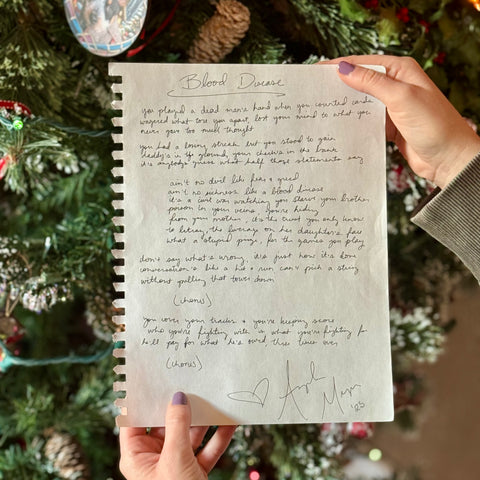 Blood Disease
you played a dead man's hand when you counted cards
wagered what tore you apart, lost your mind to what you
never gave too much thought
you had a losing streak but you stood to gain
daddy's in the ground, your check's in the bank
it's anybody's guess what half those statements say
ain't no devil like fear & greed
ain't no sickness like a blood disease
it's a curse watching you starve your brother
poison in your veins, you're hiding
from your mother, it's the you only know
to betray, the on her daughter's face
what a stupid prize, for the games you play
don't say what's wrong, it's just how it's done
conversation's like a hit & run can't pick a string
without pulling that tower down
(chorus)
you cover your tracks & you're keeping score
who you're fighting with is what you're fighting for
he'll pay for what he's owed, three times over
(chorus)
'25